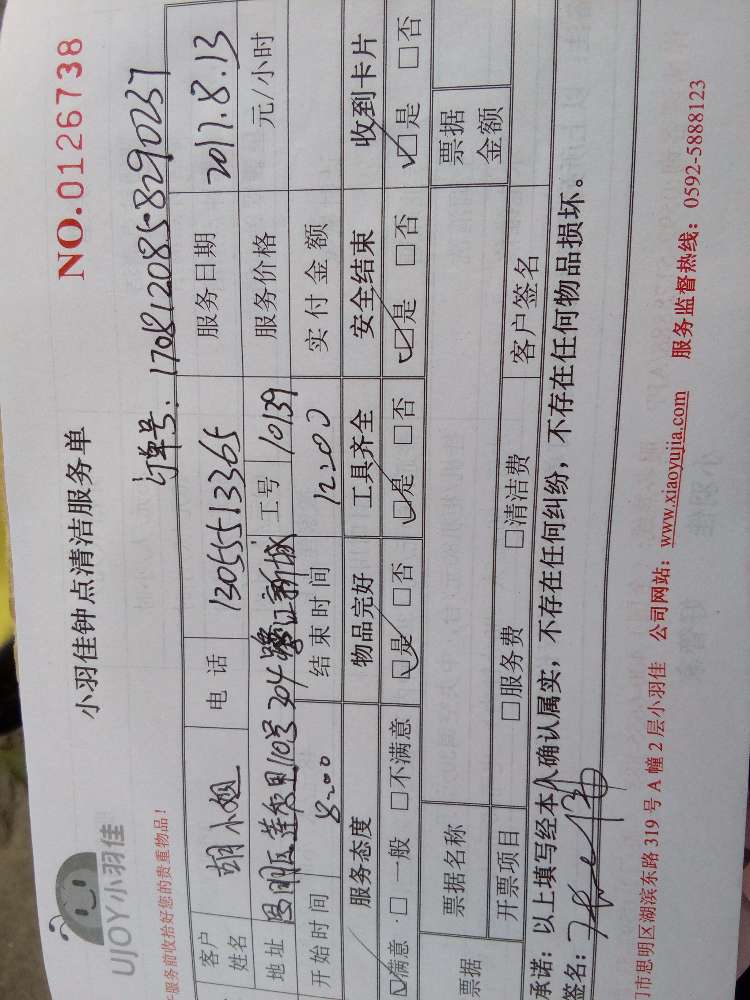 UJOY小羽佳
小羽佳钟点清洁服务单
NO.0126738
服务前收拾好您的贵重物品!
订单号:1708120858290237
客户姓名 胡小姐 电话 13055513365 服务日期 2017.8.13
地址 思明区莲花里110号304 新城 工号 10139 服务价格 元/小时
开始时间 8:00 结束时间 12:00 实付金额
服务态度 物品完好 工具齐全 安全结束 收到卡片
☑满意 □一般 □不满意 ☑是 □否 ☑是 □否 ☑是 □否 ☑是 □否
票据 票据名称 票据金额
开票项目 □服务费 □清洁费 客户签名
承诺:以上填写经本人确认属实,不存在任何纠纷,不存在任何物品损坏。
签名:
门市思明区湖滨东路319号A幢2层小羽佳 公司网站:www.xiaoyujia.com 服务监督热线:0592-5888123